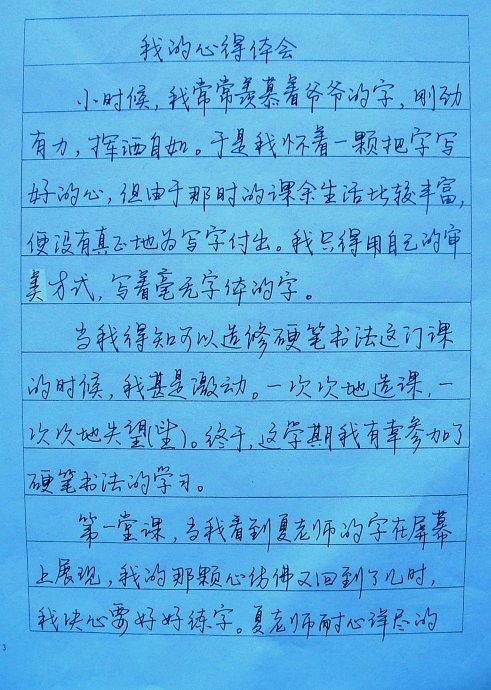 我的心得体会
小时候，我常常羡慕着爷爷的字，刚劲
有力，挥洒自如。于是我怀着一颗把字写
好的心，但由于那时的课余生活比较丰富，
便没有真正地为写字付出。我只得用自己的审
美方式，写着毫无字体的字。
当我得知可以选修硬笔书法这门课
的时候，我甚是激动。一次次地选课，一
次次地失望(望)。终于，这学期我有幸参加了
硬笔书法的学习。
第一堂课，当我看到夏老师的字在屏幕
上展现，我的那颗心仿佛又回到了儿时，
我决心要好好练字。夏老师耐心详尽的
3